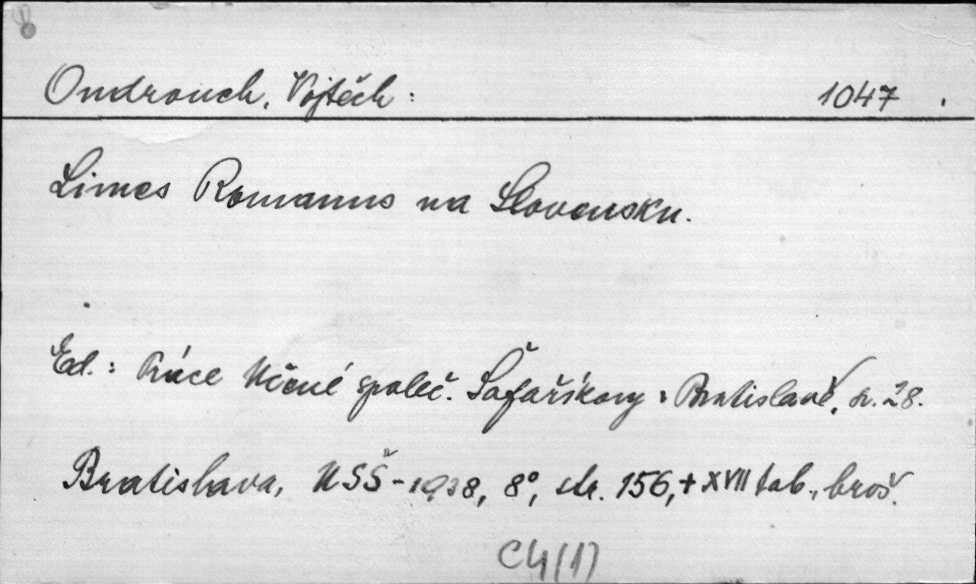 Ondrouch, Vojtěch: 1047
Limes Romanus na Slovensku.
Ed.: Práce Učené společ. Šafaříkovy v Bratislavě, sv. 28.
Bratislava, UŠŠ-1938, 8°, str. 156, + XVII tab., brož.
C4(1)